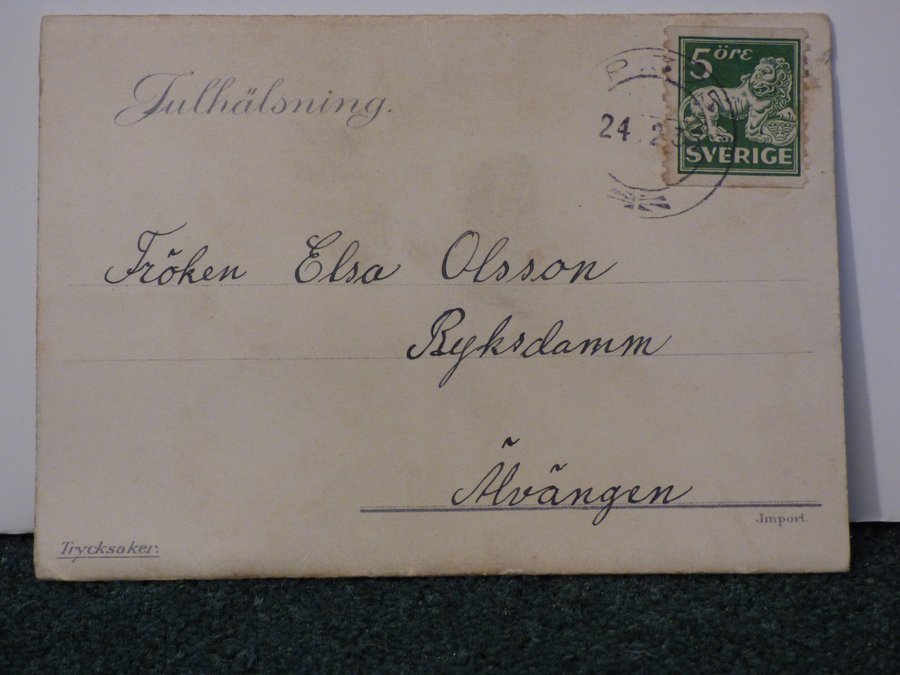 Julhälsning.
5 öre
SVERIGE
24
Fröken Elsa Olsson
Ryksdamm
Älvängen
Import.
Trycksaker.